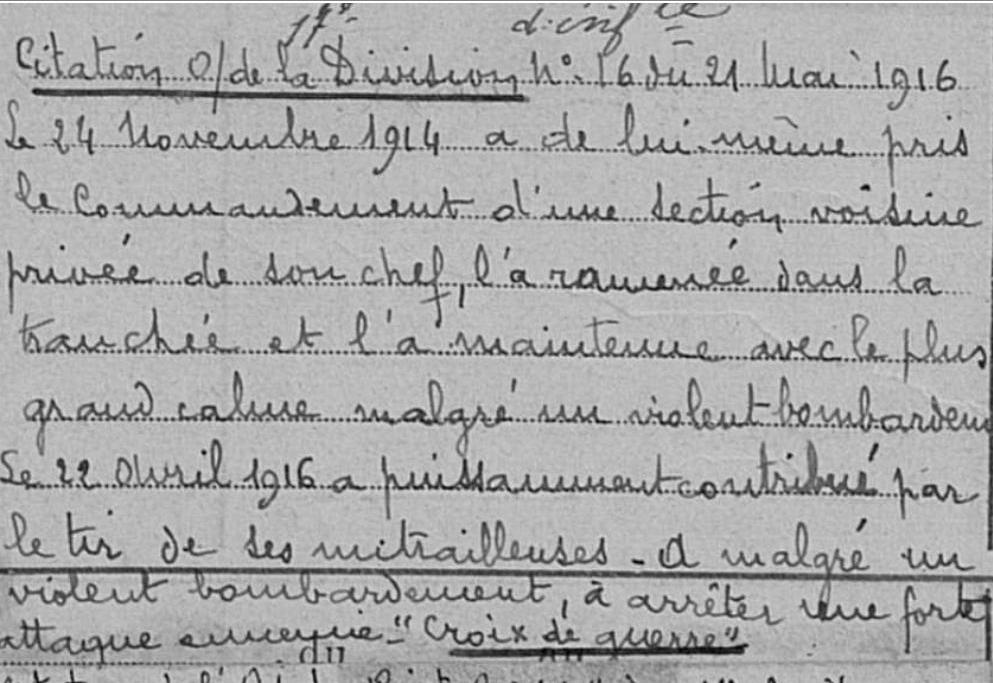 17e d'inf ie
Citation O/ de la Division N° 16 du 21 Mai 1916
Le 24 Novembre 1914 a de lui-même pris
le Commandement d'une section voisine
privée de son chef, l'a ramenée dans la
tranchée et l'a maintenue avec le plus
grand calme malgré un violent bombardem
Le 22 Avril 1916 a puissamment contribué par
le tir de ses mitrailleuses - A malgré un
violent bombardement, à arrêter une forte
attaque ennemie - "Croix de guerre"
du